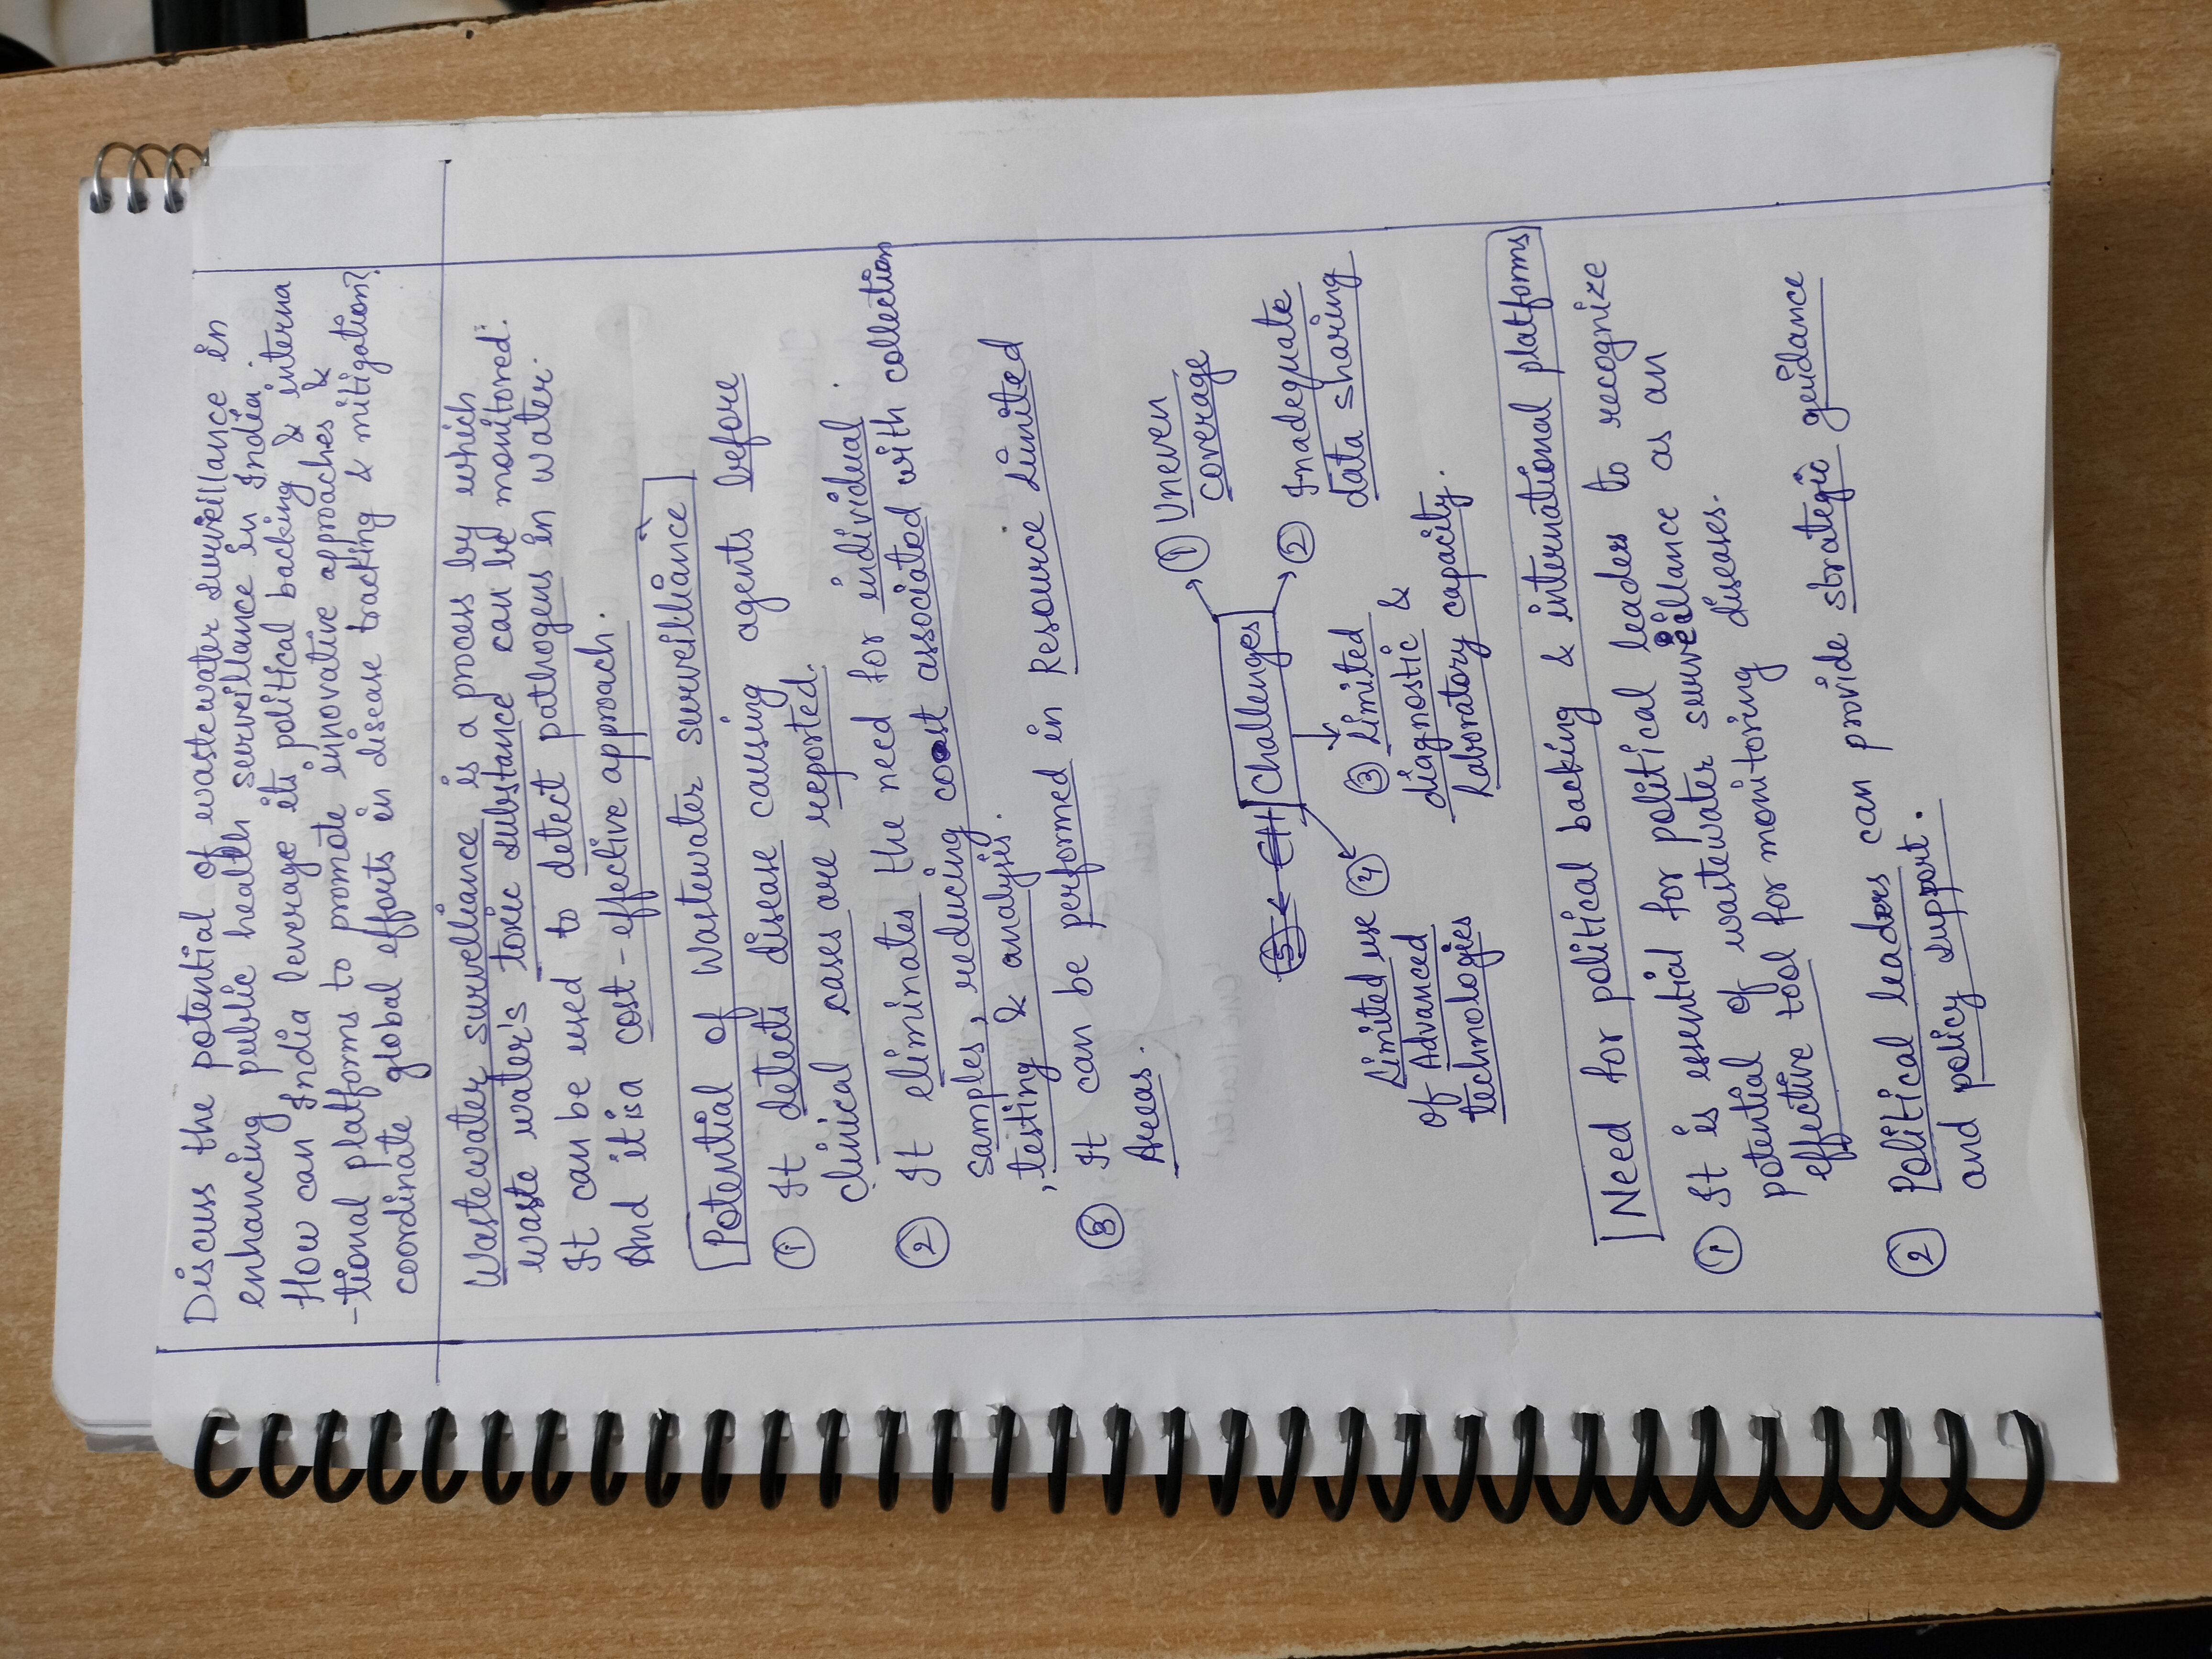 Discuss the potential of wastewater surveillance in
enhancing public health surveillance in India.
How can India leverage its political backing & interna
-tional platforms to promote innovative approaches &
coordinate global efforts in disease tracking & mitigation?
Wastewater surveillance is a process by which
waste water's toxic substance can be monitored.
It can be used to detect pathogens in water.
And it is a cost-effective approach.
Potential of Wastewater surveilliance
① It detects disease causing agents before
clinical cases are reported.
② It eliminates the need for individual
samples, reducing cost associated with collection
, testing & analysis.
③ It can be performed in Resource Limited
Areas.
Challenges
① Uneven
coverage
② Inadequate
data sharing
③ Limited
diagnostic &
Laboratory capacity.
④ Limited use
of Advanced
technologies
Need for political backing & international platforms
① It is essential for political leaders to recognize
potential of wastewater surveillance as an
effective tool for monitoring diseases.
② Political leaders can provide strategic guidance
and policy support.